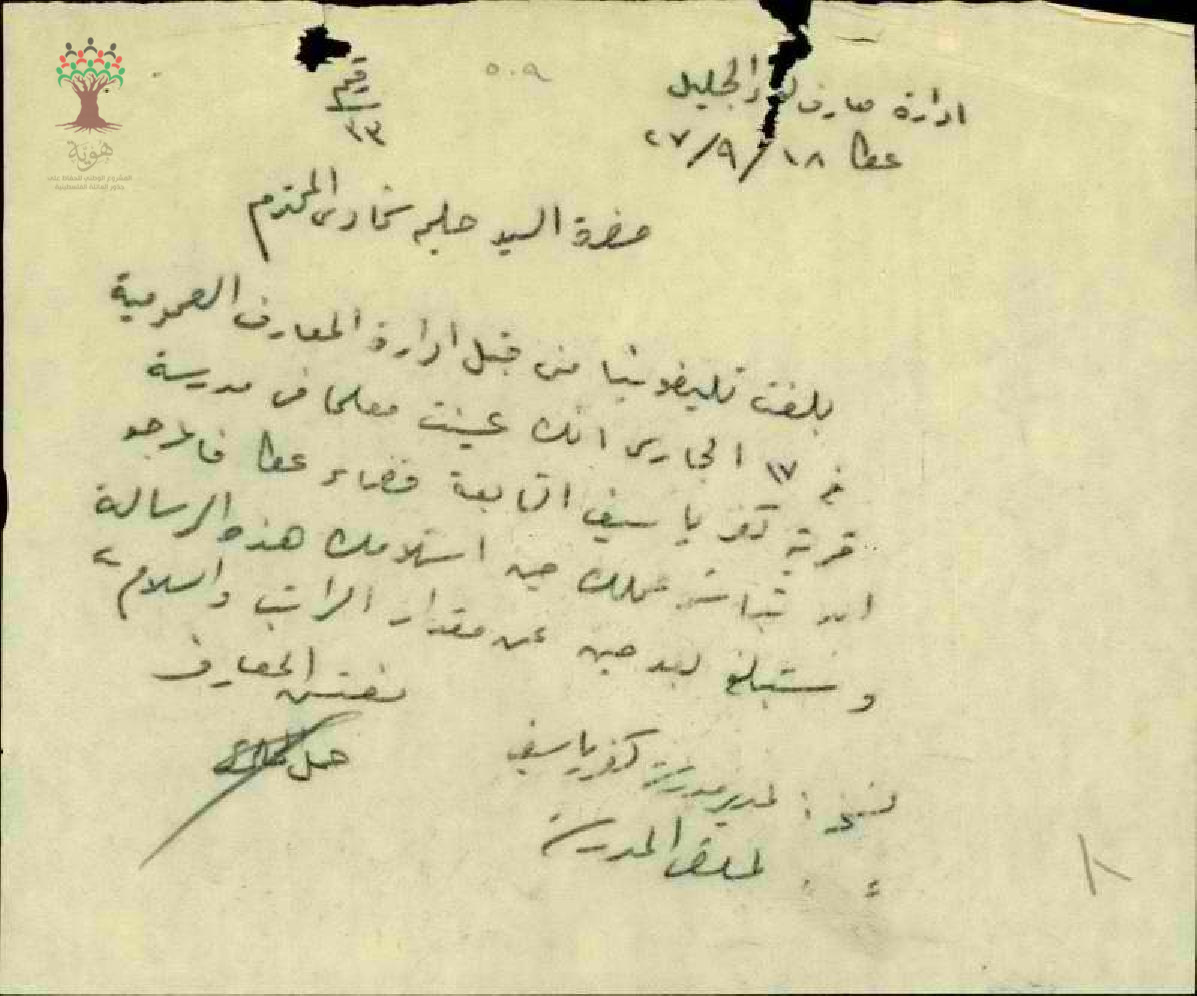 ادارة معارف لواء الجليل
عكا ١٨/٩/٢٧
رقم
٣٣
٥٠٩
حضرة السيد حليم المحترم
بلغت تليفونيا من قبل ادارة المعارف العمومية
في ١٧ الجاري انك عينت معلما في مدرسة
قرية كفر ياسيف التابعة قضاء عكا فارجو
ان تباشر عملك حين استلامك هذه الرسالة
وستبلغ بعد حين عن مقدار الراتب والسلام
مفتش المعارف
نسخة: لمدير مدرسة كفر ياسيف
لملف المدرسة
هوية
المشروع الوطني للحفاظ على
جذور العائلة الفلسطينية